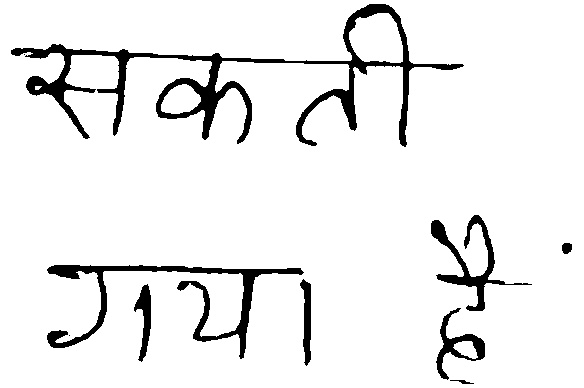 सकती
गया है